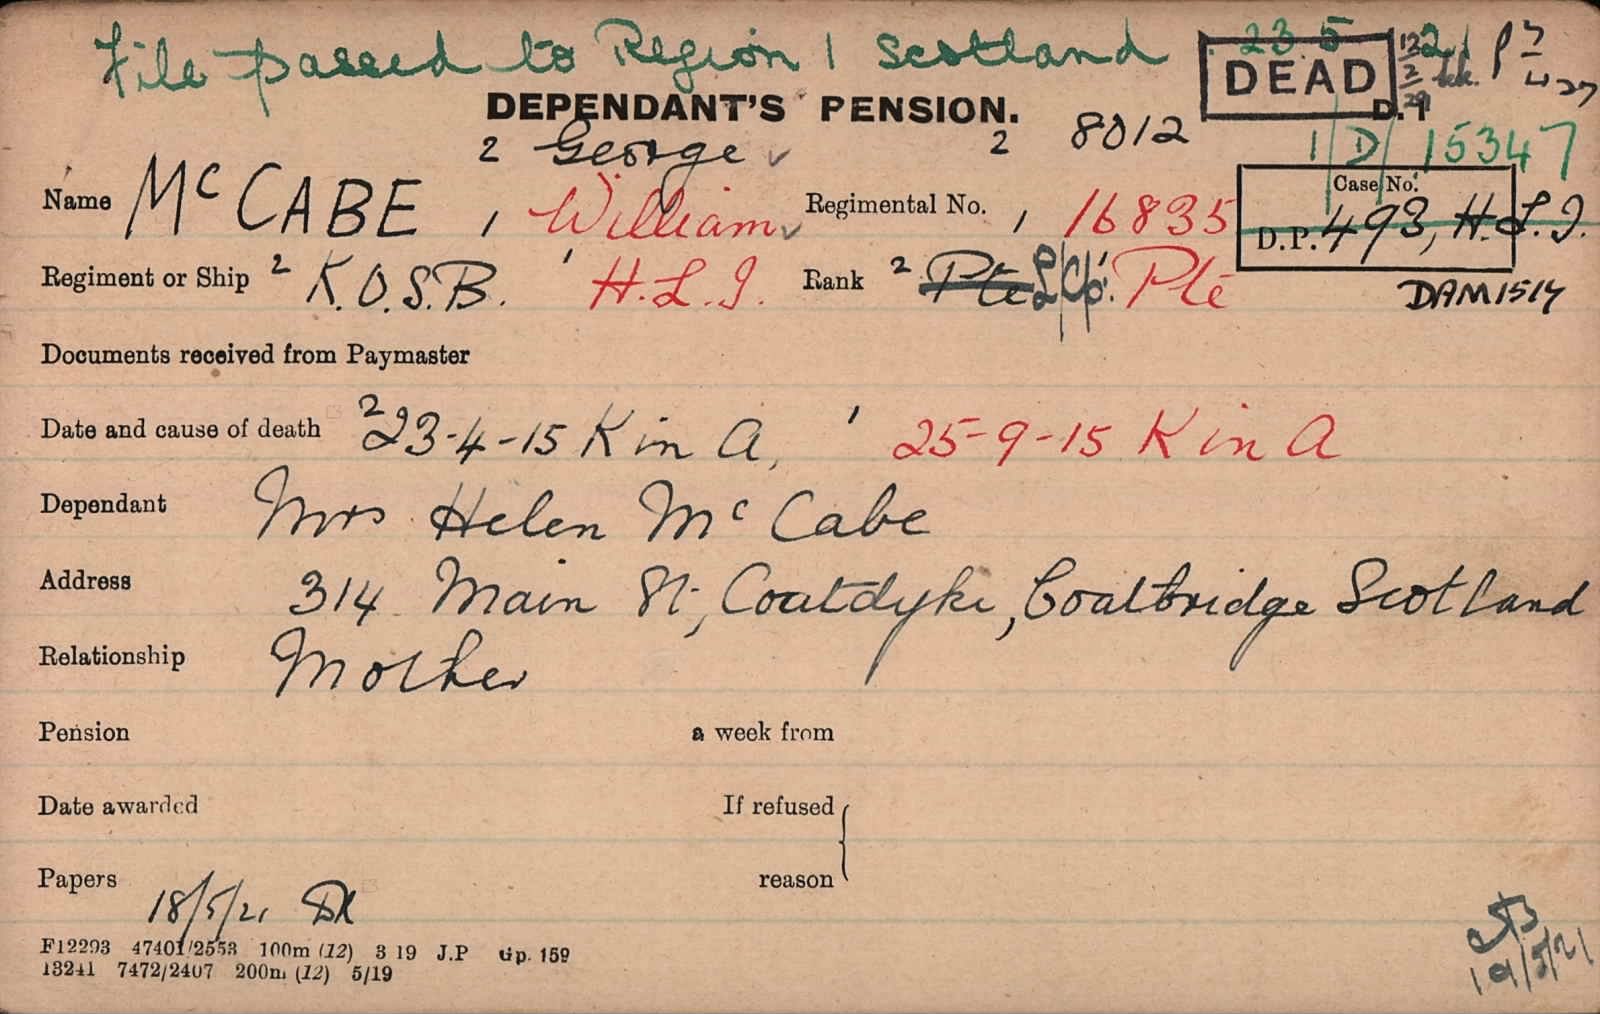 File passed to Region 1 Scotland 23 5 21
DEAD
DEPENDANT'S PENSION. D.1
2 George 2 8012 1/D/15347
Name McCABE, 1 William Regimental No. 1 16835 Case No.
D.P. 493, H.L.I.
Regiment or Ship 2 K.O.S.B. 1 H.L.I. Rank 2 Pte L/Cpl. 1 Pte
DAM 1514
Documents received from Paymaster
Date and cause of death 2 23-4-15 K in A, 1 25-9-15 K in A
Dependant Mrs Helen McCabe
Address 314 Main St, Coatdyke, Coatbridge Scotland
Relationship Mother
Pension a week from
Date awarded If refused
Papers reason
18/5/21
F12293 47401/2553 100m (12) 3 19 J.P Gp. 159
13241 7472/2407 200m (12) 5/19
19/5/21